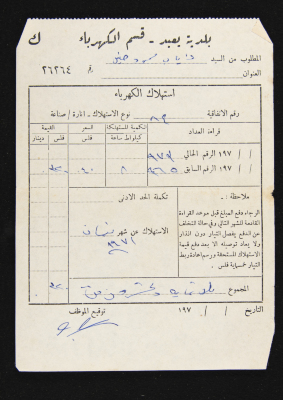 بلدية يعبد - قسم الكهرباء
ك
المطلوب من السيد
رقم ٢٦٢٦٤
العنوان
استهلاك الكهرباء
رقم الاتفاقية ٨٢ نوع الاستهلاك - انارة / صناعة
قراءة العداد
الكمية المستهلكة كيلواط ساعة
السعر فلس
القيمة فلس دينار
/ / ١٩٧ الرقم الحالي ٩٧٣
/ / ١٩٧ الرقم السابق ٩٦٥ ٨ ٤٠ ٣٢٠
ملاحظة :
الرجاء دفع المبلغ قبل موعد القراءة
القادمة للشهر التالي وفي حالة التخلف
عن الدفع يفصل التيار دون انذار
ولا يعاد توصيله الا بعد دفع قيمة
الاستهلاك المستحقة ورسم اعادة ربط
التيار خمسماية فلس .
تكملة الحد الادنى
الاستهلاك عن شهر نيسان
١٩٧١
المجموع ثلاثماية وعشرون فلس ٣٢٠
التاريخ / / ١٩٧ توقيع الموظف